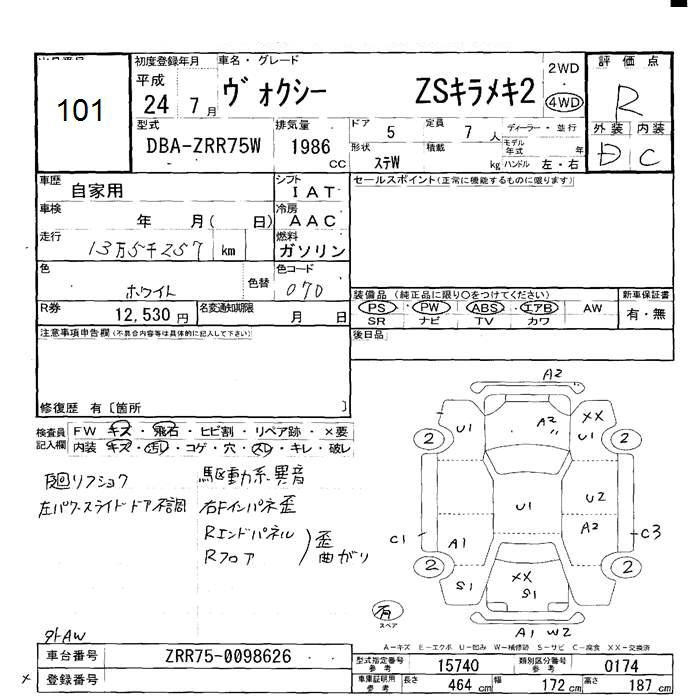 初度登録年月 車名・グレード 評価点
平成 24 7月 ヴォクシー ZSキラメキ2 2WD 4WD R
101
型式 排気量 ドア 5 定員 7人 ディーラー・並行 外装 内装
DBA-ZRR75W 1986 cc 形状 ステW 積載 kg モデル年式 年 ハンドル 左・右 D C
車歴 自家用 シフト IAT セールスポイント(正常に機能するものに限ります)
車検 年 月( 日) 冷房 AAC
走行 13万5千257 km 燃料 ガソリン
色 ホワイト 色替 色コード 070
装備品 (純正品に限り○をつけてください) 新車保証書
R券 12,530円 名変通知期限 月 日 PS・PW・ABS・エアB AW 有・無
SR ナビ TV カワ
注意事項申告欄(不具合内容等は具体的に記入して下さい) 後日品
修復歴 有〔箇所 〕
検査員記入欄 FW キズ・飛石・ヒビ割・リペア跡・×要
内装 キズ・汚レ・コゲ・穴・スレ・キレ・破レ
リフショウ 駆動系異音
左パワースライドドア不調 右Fインパネ歪
Rエンドパネル 歪
Rフロア 曲がり
A2
U1 A2 XX U1
2 2
U1 U2
C1 A1 A2 C3
2 2
S1 XX S1
有 スペア A1 W2
外AW
A-キズ E-エクボ U-凹み W-補修跡 S-サビ C-腐食 XX-交換済
車台番号 ZRR75-0098626 型式指定番号 参考 15740 類別区分番号 参考 0174
× 登録番号 車庫証明用 参考 長さ 464cm 幅 172cm 高さ 187cm